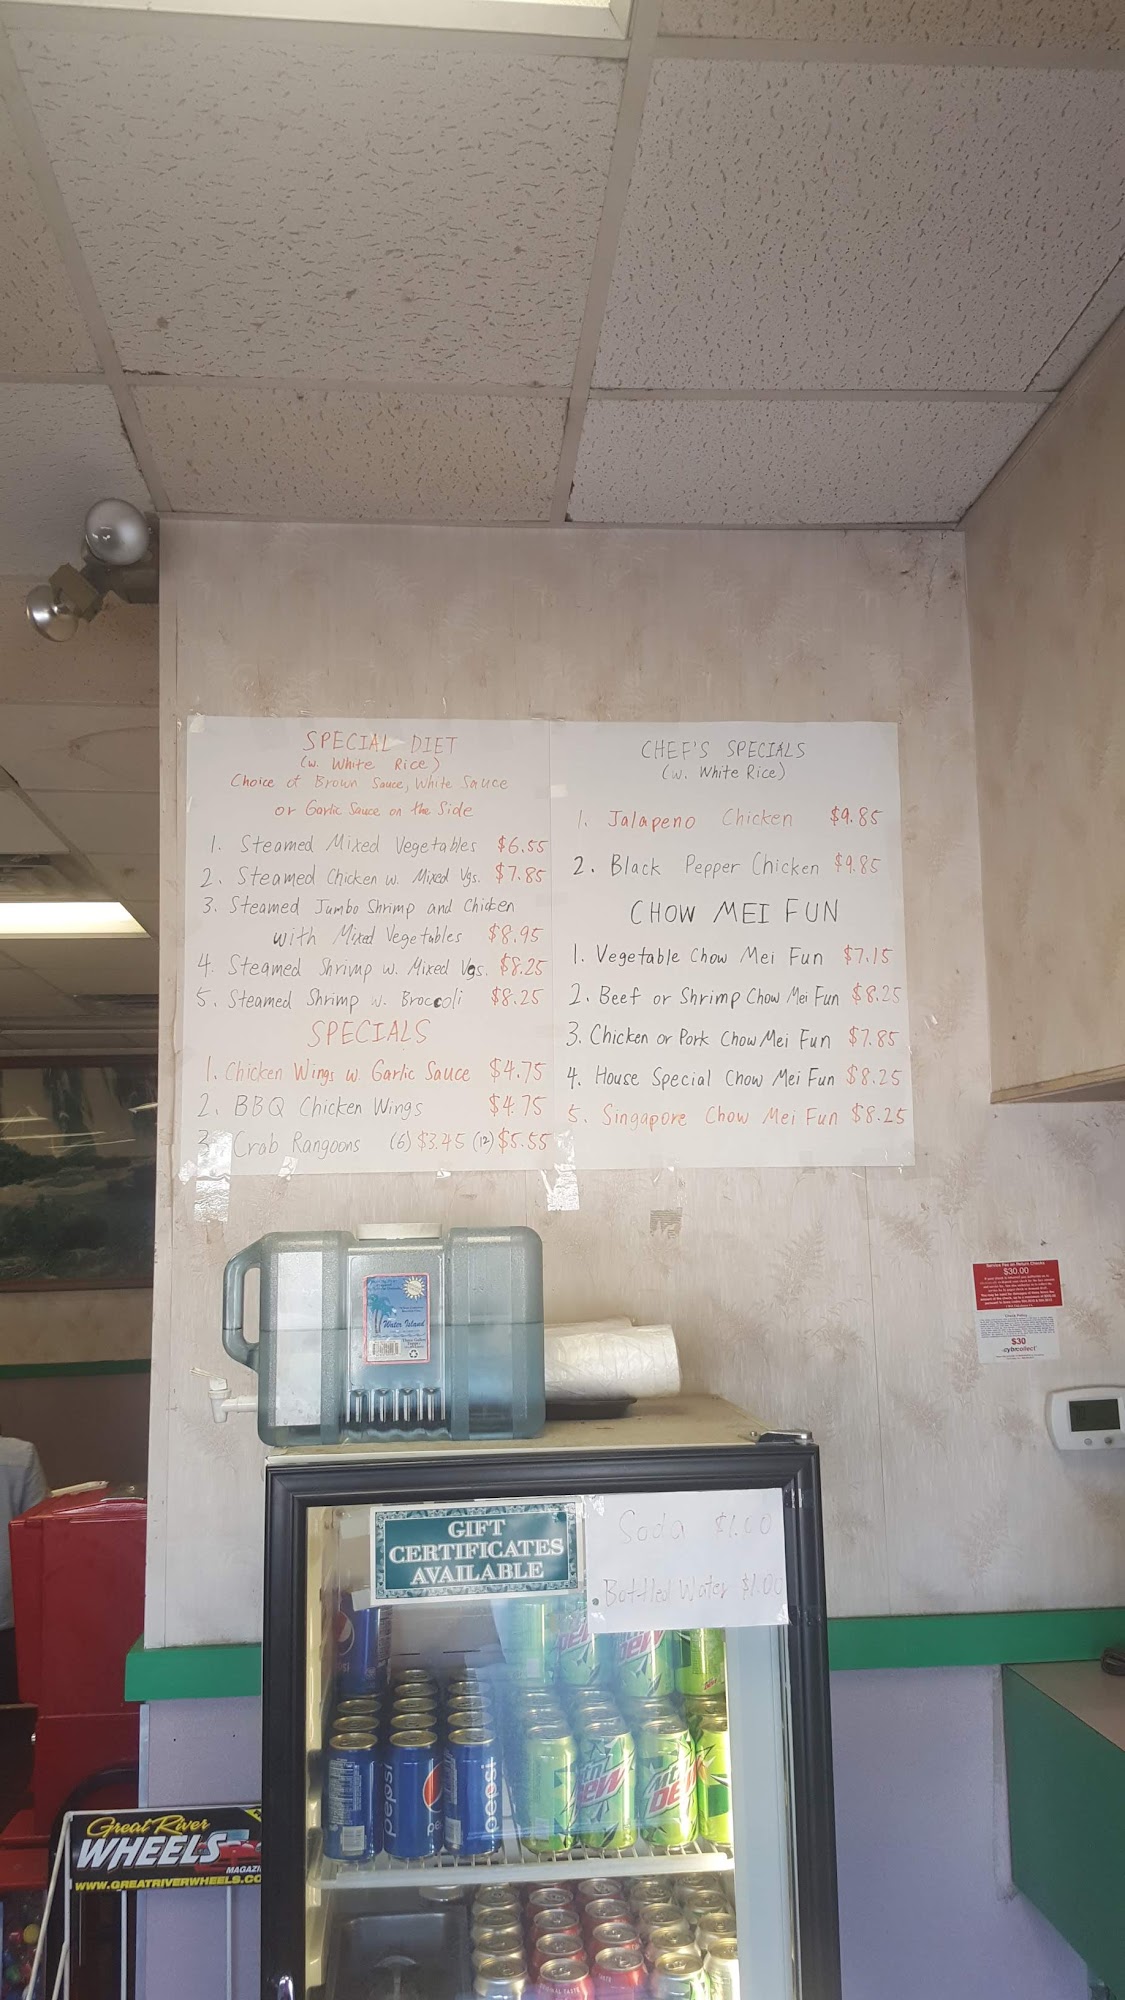 SPECIAL DIET
(w. White Rice)
Choice of Brown Sauce, White Sauce
or Garlic Sauce on the Side
1. Steamed Mixed Vegetables $6.55
2. Steamed Chicken w. Mixed Vgs. $7.85
3. Steamed Jumbo Shrimp and Chicken
with Mixed Vegetables $8.95
4. Steamed Shrimp w. Mixed Vgs. $8.25
5. Steamed Shrimp w. Broccoli $8.25
SPECIALS
1. Chicken Wings w Garlic Sauce $4.75
2. BBQ Chicken Wings $4.75
3. Crab Rangoons (6) $3.45 (12) $5.55
CHEF'S SPECIALS
(w. White Rice)
1. Jalapeno Chicken $9.85
2. Black Pepper Chicken $9.85
CHOW MEI FUN
1. Vegetable Chow Mei Fun $7.15
2. Beef or Shrimp Chow Mei Fun $8.25
3. Chicken or Pork Chow Mei Fun $7.85
4. House Special Chow Mei Fun $8.25
5. Singapore Chow Mei Fun $8.25
Water Island
Service Fee on Return Checks
$30.00
$30
cybrcollect
GIFT
CERTIFICATES
AVAILABLE
Soda $1.00
Bottled Water $1.00
pepsi
pepsi
Mtn
DEW
Mtn
DEW
Great River
WHEELS
MAGAZI
WWW.GREATRIVERWHEELS.CO